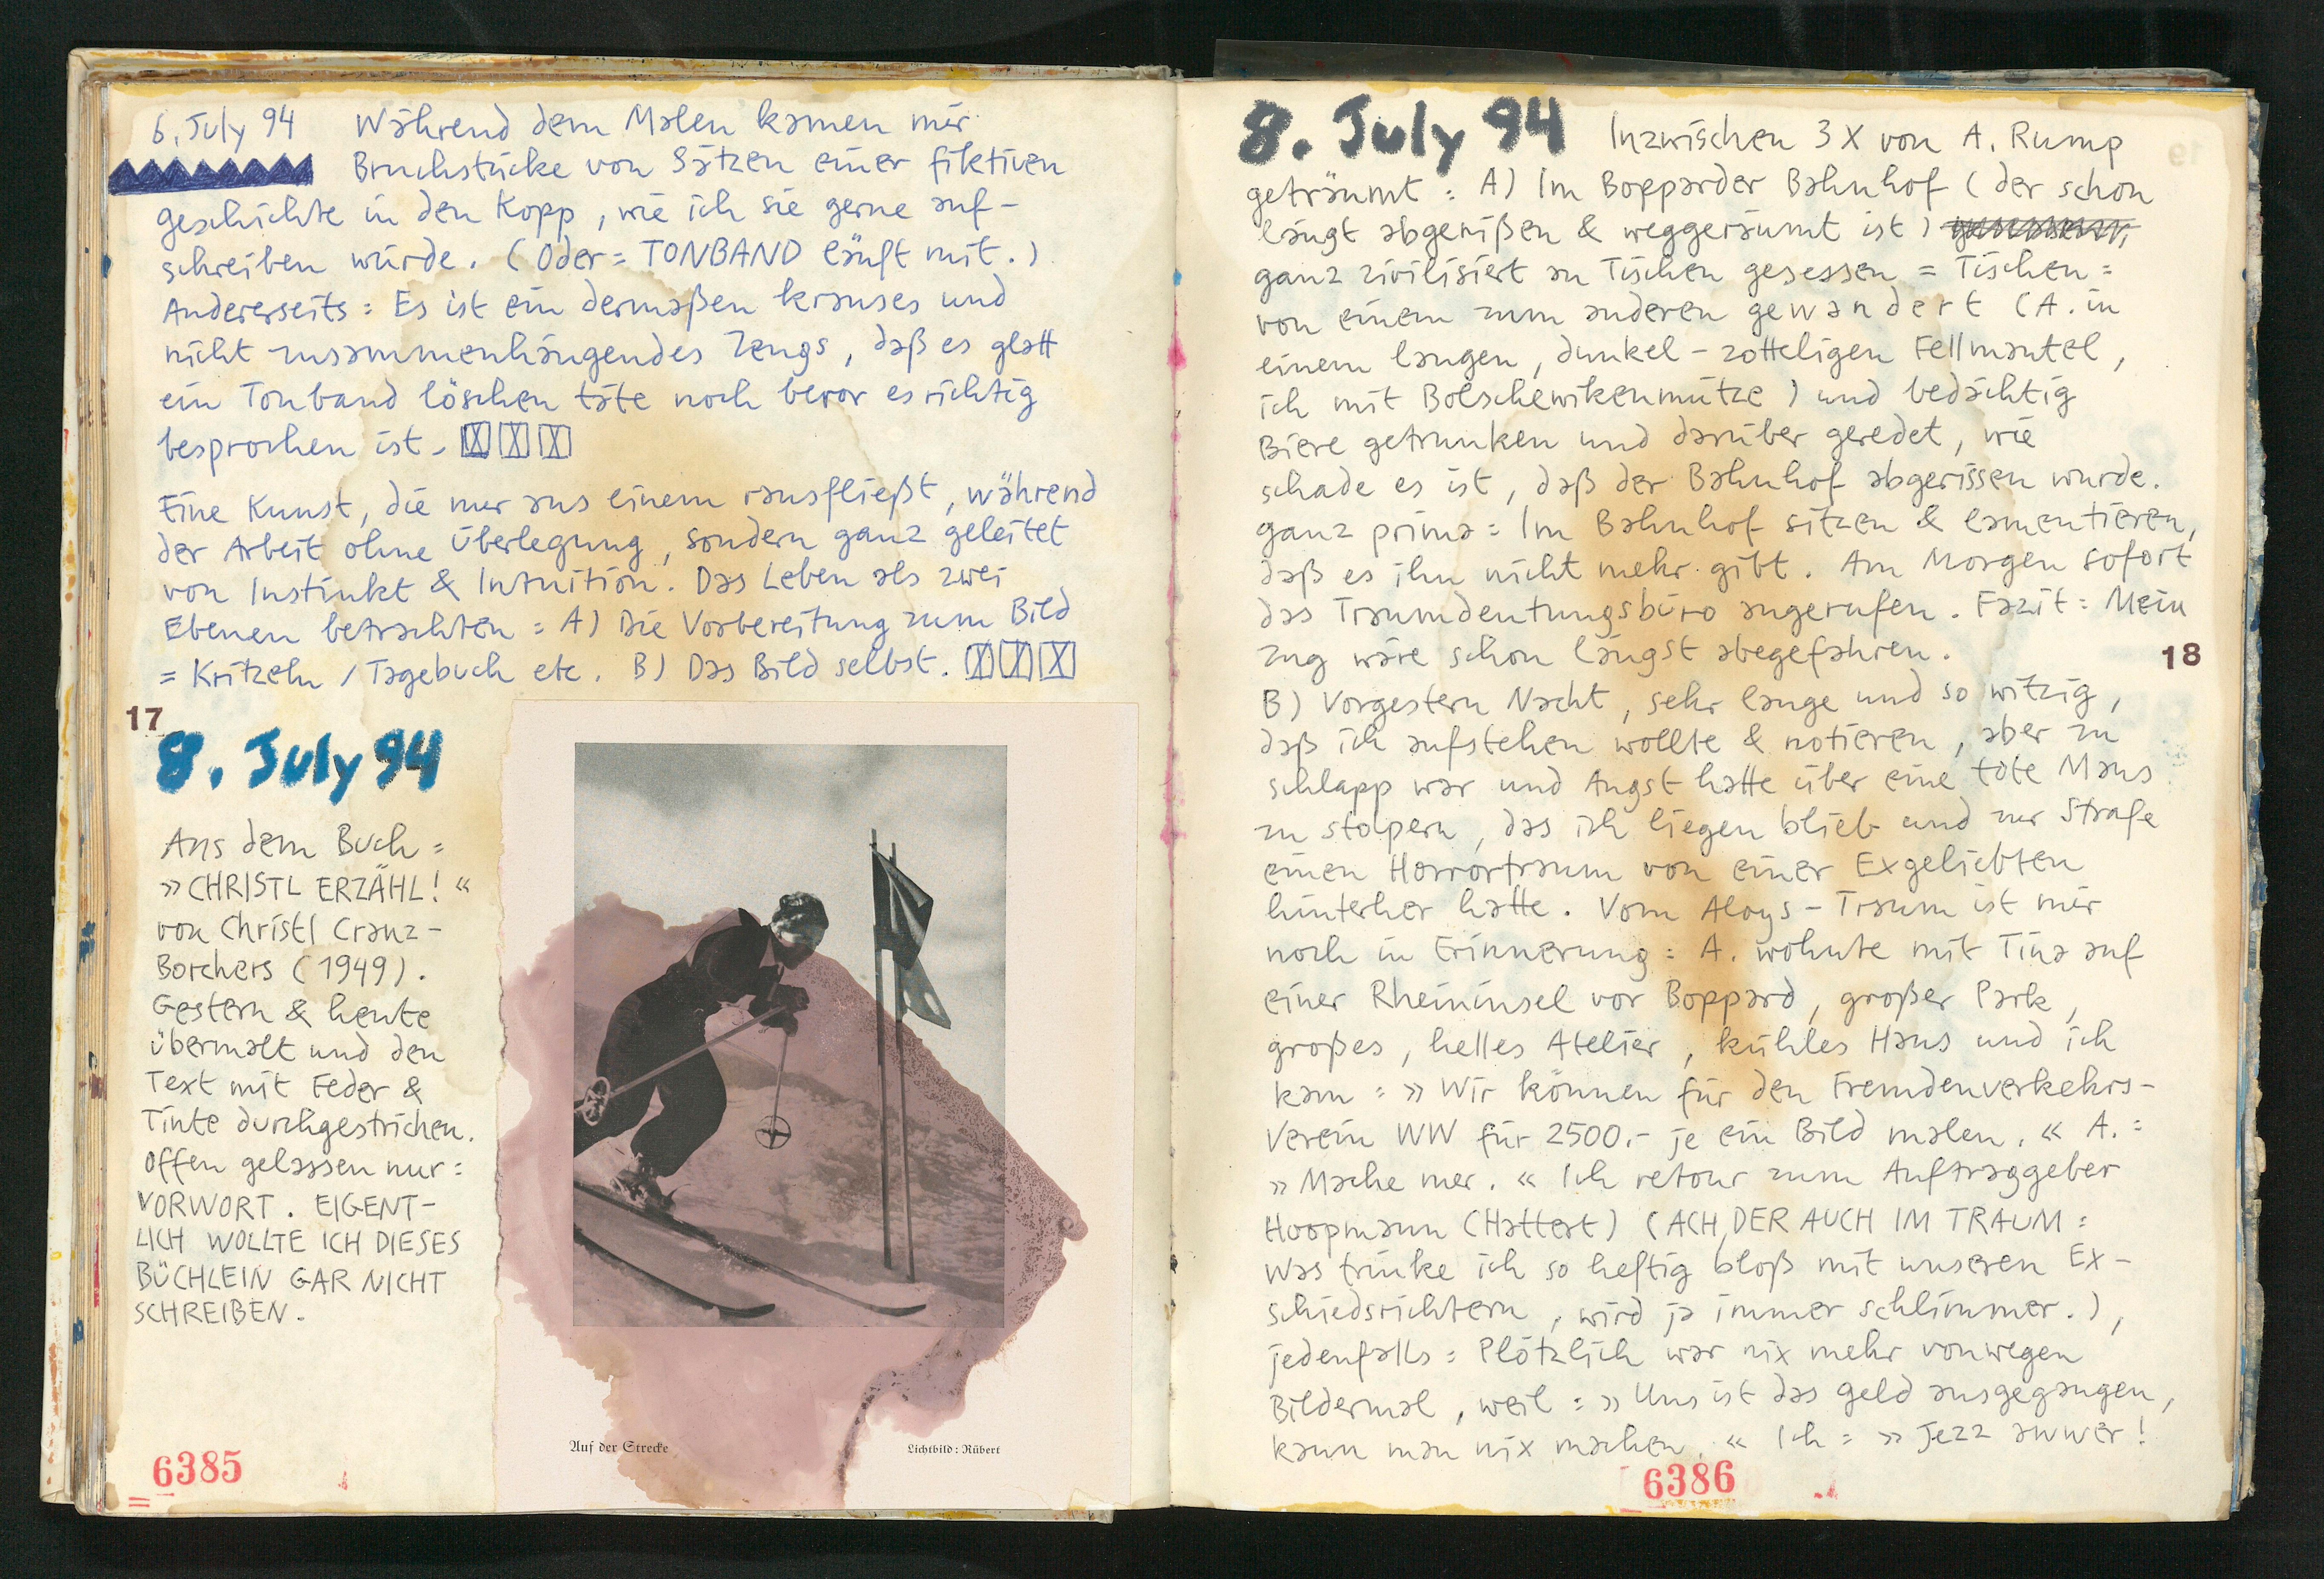 6. July 94 Während dem Malen kamen mir
Bruchstücke von Sätzen einer fiktiven
Geschichte in den Kopp, wie ich sie gerne auf-
schreiben würde. (Oder = TONBAND läuft mit.)
Andererseits = Es ist ein dermaßen krauses und
nicht zusammenhängendes Zeugs, daß es glatt
ein Tonband löschen täte noch bevor es richtig
besprochen ist.
Eine Kunst, die nur aus einem rausfließt, während
der Arbeit ohne Überlegung, sondern ganz geleitet
von Instinkt & Intuition. Das Leben als zwei
Ebenen betrachten = A) Die Vorbereitung zum Bild
= Kritzeln / Tagebuch etc. B) Das Bild selbst.
17
8. July 94
Aus dem Buch =
»CHRISTL ERZÄHL!«
von Christl Cranz-
Borchers (1949).
Gestern & heute
übermalt und den
Text mit Feder &
Tinte durchgestrichen.
Offen gelassen nur =
VORWORT. EIGENT-
LICH WOLLTE ICH DIESES
BÜCHLEIN GAR NICHT
SCHREIBEN.
Auf der Strecke
Lichtbild: Rübert
6385
8. July 94 Inzwischen 3 X von A. Rump
geträumt = A) Im Bopparder Bahnhof (der schon
längt abgerißen & weggeräumt ist)
ganz zivilisiert an Tischen gesessen = Tischen =
von einem zum anderen gewandert (A. in
einem langen, dunkel-zotteligen Fellmantel,
ich mit Bolschewikenmütze) und bedächtig
Biere getrunken und darüber geredet, wie
schade es ist, daß der Bahnhof abgerissen wurde.
ganz prima = Im Bahnhof sitzen & lamentieren,
daß es ihn nicht mehr gibt. Am Morgen sofort
das Traumdeutungsbüro angerufen. Fazit = Mein
Zug wäre schon längst abegefahren.
18
B) Vorgestern Nacht, sehr lange und so witzig,
daß ich aufstehen wollte & notieren, aber zu
schlapp war und Angst hatte über eine tote Maus
zu stolpern, das ich liegen blieb und zur Strafe
einen Horrortraum von einer Exgeliebten
hinterher hatte. Vom Aloys-Traum ist mir
noch in Erinnerung = A. wohnte mit Tina auf
einer Rheininsel vor Boppard, großer Park,
großes, helles Atelier, kühles Haus und ich
kam = »Wir können für den Fremdenverkehrs-
Verein WW für 2500.- je ein Bild malen.« A. =
»Mache mer.« Ich retour zum Auftraggeber
Hoopmann (Hattert) (ACH, DER AUCH IM TRAUM =
Was trinke ich so heftig bloß mit unseren Ex-
schiedsrichtern, wird ja immer schlimmer.),
jedenfalls = Plötzlich war nix mehr vonwegen
Bildermal, weil = »Uns ist das Geld ausgegangen,
kann man nix machen.« Ich = »Jezz awwer!
6386